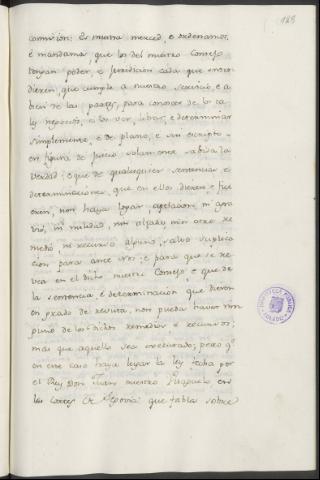 163
comision: Es nuestra merced, e ordenamos,
e mandamos, que los del nuestro Consejo
tengan poder, e jurediccion cada que enten-
dieren, que cumple a nuestro servicio, e a
bien de las partes, para conocer de los ta-
les negocios, e los ver, librar, e determinar
simplemente, e de plano, e sin escripto
en figura de juicio solamente sabida la
verdad: e que de qualesquier sentencias e
determinaciones, que en ello dieren, e fici-
eren, non haya logar, apelacion, ni agra-
vio, ni nulidad, nin alzada, nin otro re-
medio, ni recurso alguno, salvo suplica-
cion para ante nos, e para que se re-
vea en el dicho nuestro Consejo e que de
la sentencia e determinacion que dieren
en grado de revista, non pueda haver nin-
guno de los dichos remedios, e recursos;
mas que aquello sea executado; pero qe
en este caso haya lugar la ley fecha por
el Rey Don Juan nuestro Visaguelo en
las Cortes de Segovia que fabla sobre
BIBLIOTECA PUBLICA
TOLEDO